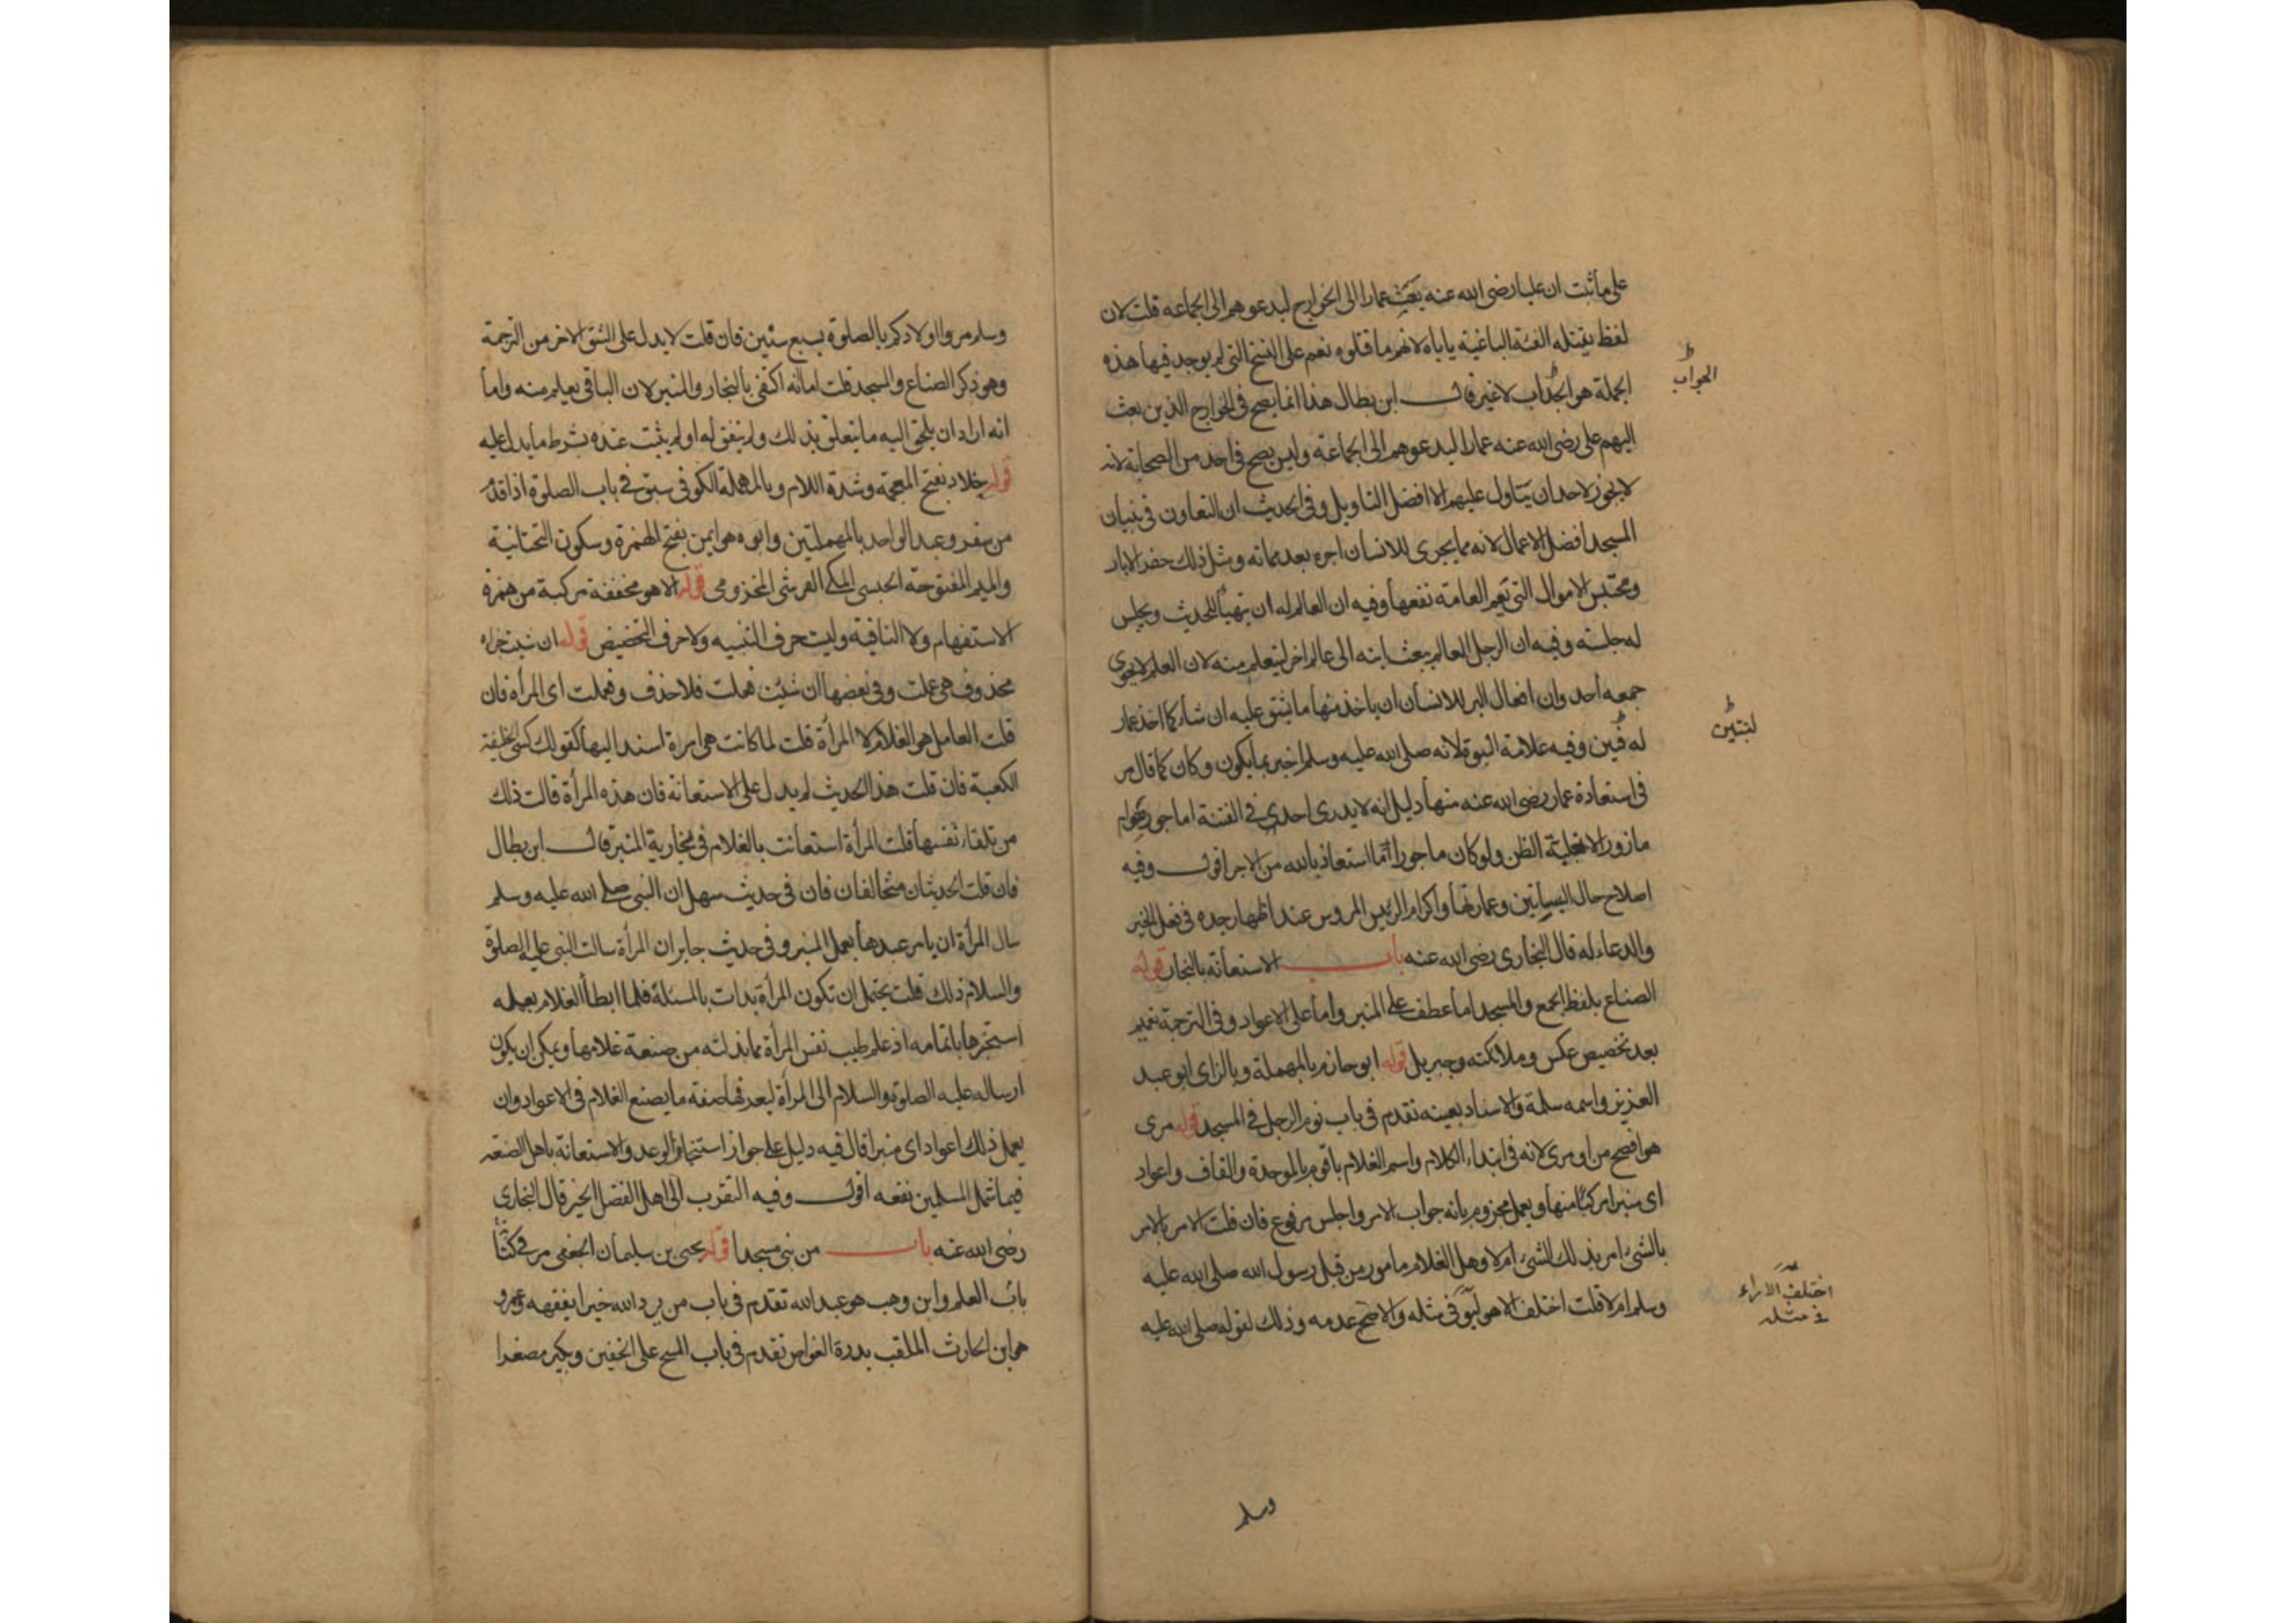 على ماثبت ان عليا رضى الله عنه بعث عمارا الى الخوارج ليدعوهم الى الجماعه قلت لان
لفظ يقتله الفئة الباغية ياباه لانهم ما قتلوه نعم على النسخ التى لم يوجد فيها هذه
الجملة هو الجواب لاغير قال ابن بطال هذا انما يصح فى الخوارج الذين بعث
اليهم على رضى الله عنه عمارا ليدعوهم الى الجماعة وليس يصح فى احد من الصحابة لانه
لايجوز لاحد ان يتاول عليهم الا افضل التاويل وفى الحديث ان التعاون فى بنيان
المسجد افضل الاعمال لانه مما يجرى للانسان اجره بعد مماته ومثل ذلك حفر الابار
وتحبيس الاموال التى تعم العامة نفعها وفيه ان العالم له ان يتهيأ للحديث ويجلس
له جلسته وفيه ان الرجل العالم يبعث ابنه الى عالم اخر ليتعلم منه لان العلم لايحوى
جمعه احد وان افعال البر للانسان ان ياخذ منها ما يشق عليه ان شاء كما اخذ عمار
وفيه علامة النبوة لانه صلى الله عليه وسلم اخبر بما يكون وكان كما قال
فى استعاذة عمار رضى الله عنه منها دليل انه لا يدرى احد فى الفتنة اماجور هوام
مازور الا بغلبة الظن ولوكان ماجورا لما استعاذ بالله من الاجر اقول وفيه
اصلاح حال البساتين وعمارتها واكرام الرئيس المروس عند اظهار جده فى فعل الخير
والدعاء له قال البخارى رضى الله عنه باب الاستعانة بالنجار قوله
الصناع بلفظ الجمع والمسجد اما عطف على المنبر واما على الاعواد وفى الترجمة تعميم
بعد تخصيص عكس وملائكته وجبريل قوله ابوحازم بالمهملة وبالزاى ابوعبد
العزيز واسمه سلمة والاسناد بعينه تقدم فى باب نوم الرجل فى المسجد قوله مرى
هوافصح من اومرى لانه فى ابتداء الكلام واسم الغلام باقوم بالموحدة والقاف واعواد
اى منبرا مركبا منها ويعمل مجزوم بانه جواب الامر واجلس مرفوع فان قلت الامر بالامر
بالشئ امر بذلك الشئ ام لا وهل الغلام مامور من قبل رسول الله صلى الله عليه
وسلم ام لا قلت اختلف فى مثله والاصح عدمه وذلك لقوله صلى الله عليه
الجواب
لبنتين
اختلف الاراء
فى مثله
وسلم
وسلم مروا اولادكم بالصلوة بسبع سنين فان قلت لايدل على الشق الاخر من الترجمة
وهوذكر الصناع والمسجد قلت اما انه اكتفى بالنجار والمنبر لان الباقى يعلم منه واما
انه اراد ان يلحق اليه مايتعلق بذلك ولم يتفق له اولم يثبت عنده بشرطه مايدل عليه
قوله خلاد بفتح المعجمة وشدة اللام وبالمهملة الكوفى سبق فى باب الصلوة اذا قدم
من سفر وعبد الواحد بالمهملتين وابوه هو ايمن بفتح الهمزة وسكون التحتانية
والميم المفتوحة الحبشى المكى القرشى المخزومى قوله الاهو مخففة مركبة من همزة
الاستفهام ولا النافية وليت حرف التنبيه ولاحرف التحضيض قوله ان شئت جزاءه
محذوف هى عملت وفى بعضها ان شئت فعلت فلاحذف وفعملت اى المراة فان
قلت العامل هو الغلام لا المرأة قلت لما كانت هى امرة اسند اليها كقولك كسى الخليفة
الكعبة فان قلت هذا الحديث لم يدل على الاستعانة فان هذه المرأة قالت ذلك
من تلقاء نفسها قلت المرأة استعانت بالغلام فى نجارية المنبر قال ابن بطال
فان قلت الحديثان متخالفان فان فى حديث سهل ان النبى صلى الله عليه وسلم
سال المرأة ان يامر عبدها بعمل المنبر وفى حديث جابر ان المرأة سالت النبى عليه الصلوة
والسلام ذلك قلت يحتمل ان تكون المرأة بدات بالمسئلة فلما ابطأ الغلام بعمله
استنجزها باتمامه اذ علم طيب نفس المرأة بما بذلته من صنعة غلامها ويمكن ان يكون
ارساله عليه الصلوة والسلام الى المرأة ليعرفها صفة مايصنع الغلام فى الاعواد وان
يعمل ذلك اعوادا اى منبرا قال فيه دليل على جواز استنجاز الوعد والاستعانة باهل الصنعة
فيما شمل المسلمين نفعه اقول وفيه التقرب الى اهل الفضل الخير قال البخارى
رضى الله عنه باب من بنى مسجدا قوله يحيى بن سليمان الجعفى مر فى كتاب
باب العلم وابن وهب هو عبد الله تقدم فى باب من يرد الله خيرا يفقهه وعمرو
هو ابن الحارث الملقب بدرة الغواص تقدم فى باب المسح على الخفين وبكير مصغرا